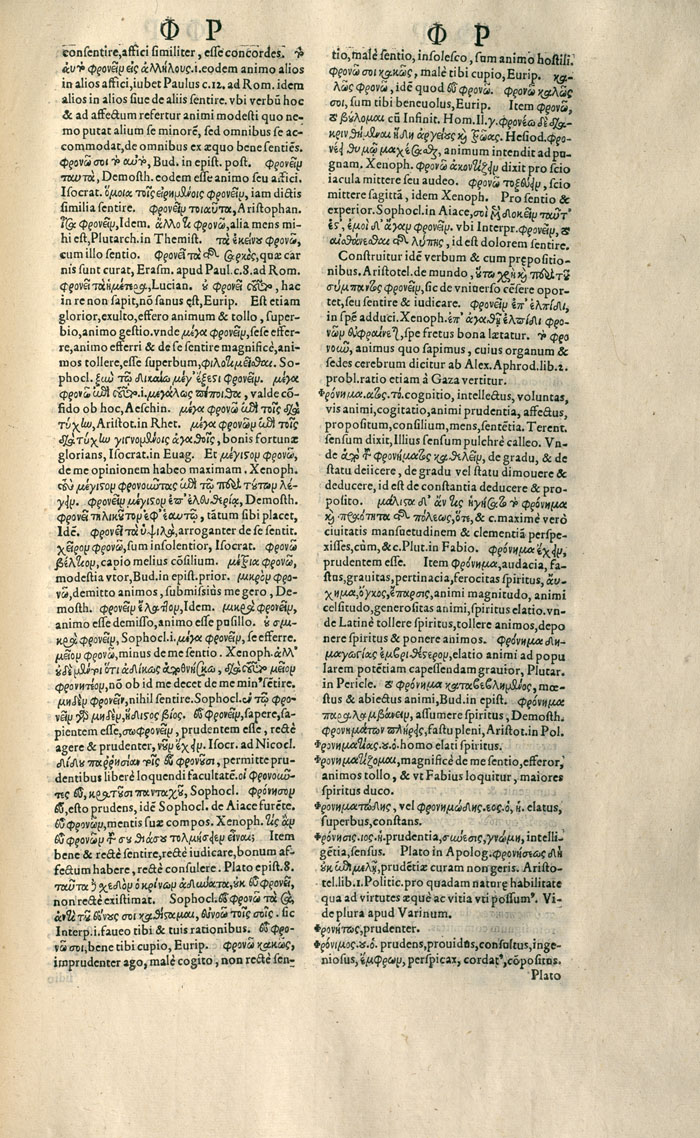 Φ Ρ
consentire, affici similiter, esse concordes. τὸ
αὐτὸ φρονεῖν εἰς ἀλλήλους .i. eodem animo alios
in alios affici, iubet Paulus c.12. ad Rom. idem
alios in alios siue de aliis sentire. vbi verbũ hoc
& ad affectum refertur animi modesti quo ne-
mo putat alium se minorẽ, sed omnibus se ac-
commodat, de omnibus ex æquo bene sentiẽs.
φρονῶ σοι τὸ αὐτὸ, Bud. in epist. post. φρονεῖν
ταυτὰ, Demosth. eodem esse animo seu affici.
Isocrat. ὅμοια τοῖς εἰρημένοις φρονεῖν, iam dictis
similia sentire. φρονεῖν τοιαῦτα, Aristophan.
ἴσα φρονεῖν, Idem. ἄλλο τι φρονῶ, alia mens mi-
hi est, Plutarch. in Themist. τὰ ἐκείνου φρονῶ,
cum illo sentio. φρονεῖ τὰ τῆς σαρκὸς, quæ car-
nis sunt curat, Erasm. apud Paul. c.8. ad Rom.
φρονεῖ τὰ ἡμέτερα, Lucian. οὐ φρονεῖ τοῦτο, hac
in re non sapit, nõ sanus est, Eurip. Est etiam
glorior, exulto, effero animum & tollo, super-
bio, animo gestio. vnde μέγα φρονεῖν, sese effer-
re, animo efferri & de se sentire magnificè, ani-
mos tollere, esse superbum, φιλοτιμεῖσθαι. So-
phocl. ξὺν τῷ δικαίῳ μέγ' ἔξεστι φρονεῖν. μέγα
φρονῶ ἐπὶ τούτῳ .i. μεγάλως πέποιθα, valde cõ-
fido ob hoc, Aeschin. μέγα φρονῶ ἐπὶ τοῖς διὰ
τύχην, Aristot. in Rhet. μέγα φρονῶν ἐπὶ τοῖς
διὰ τύχην γιγνομένοις ἀγαθοῖς, bonis fortunæ
glorians, Isocrat. in Euag. Et μέγιστον φρονῶ,
de me opinionem habeo maximam. Xenoph.
μέγιστον φρονοῦντας ἐπὶ τῷ περὶ τούτων λέ-
γειν. φρονεῖν μέγιστον ἐπ' ἐλευθερίᾳ, Demosth.
φρονεῖ τηλικοῦτον ἐφ' ἑαυτῷ, tãtum sibi placet,
Idẽ. φρονεῖ τὰ ὑψηλὰ, arroganter de se sentit.
χεῖρον φρονῶ, sum insolentior, Isocrat. φρονῶ
βέλτιον, capio melius cõsilium. μέτρια φρονῶ,
modestia vtor, Bud. in epist. prior. μικρὸν φρο-
νῶ, demitto animos, submissiùs me gero, De-
mosth. φρονεῖν ἔλαττον, Idem. μικρὰ φρονεῖν,
animo esse demisso, animo esse pusillo. οὐ σμι-
κρὰ φρονεῖν, Sophocl. i. μέγα φρονεῖν, se efferre.
μεῖον φρονῶ, minus de me sentio. Xenoph. ἀλλ'
οὐδὲ μέντοι ὅτι ἀδίκως ἀποθνήσκω, διὰ τοῦτο μεῖον
φρονητέον, nõ ob id me decet de me minꝰ sẽtire.
μηδὲν φρονεῖν, nihil sentire. Sophocl. ἐν τῷ φρο-
νεῖν γὰρ μηδὲν, ἥδιστος βίος. εὖ φρονεῖν, sapere, sa-
pientem esse, σωφρονεῖν, prudentem esse, rectè
agere & prudenter, νοῦν ἔχειν. Isocr. ad Nicocl.
δίδου παρρησίαν τοῖς εὖ φρονοῦσι, permitte pru-
dentibus liberè loquendi facultatẽ. οἱ φρονοῦν-
τες εὖ, κρατοῦσι πανταχοῦ, Sophocl. φρόνησον
εὖ, esto prudens, idẽ Sophocl. de Aiace furẽte.
εὖ φρονῶν, mentis suæ compos. Xenoph. τίς ἂν
εὖ φρονῶν τοῦ σοῦ θιάσου τολμήσειεν εἶναι; Item
bene & rectè sentire, rectè iudicare, bonum af-
fectum habere, rectè consulere. Plato epist.8.
non rectè existimat. Sophocl. εὖ φρονῶ τὰ σὰ,
ἀντὶ τοῦ εὔνους σοι καθίσταμαι, εὐνοῶ τοῖς σοῖς. sic
Interp. i. faueo tibi & tuis rationibus. εὖ φρο-
νῶ σοι, bene tibi cupio, Eurip. φρονῶ κακῶς,
imprudenter ago, malè cogito, non rectè sen-
Φ Ρ
tio, malè sentio, insolesco, sum animo hostili.
φρονῶ σοι κακῶς, malè tibi cupio, Eurip. κα-
λῶς φρονῶ, idẽ quod εὖ φρονῶ. φρονῶ καλῶς
σοι, sum tibi beneuolus, Eurip. Item φρονῶ,
τὸ βούλομαι cũ Infinit. Hom. Il. γ. φρονέω δὲ δια-
κρινθήμεναι ἤδη ἀργείους καὶ τρῶας. Hesiod. φρο-
νέει θυμῷ μαχέσασθαι, animum intendit ad pu-
gnam. Xenoph. φρονῶ ἀκοντίζειν dixit pro scio
iacula mittere seu audeo. φρονῶ τοξεύειν, scio
mittere sagittã, idem Xenoph. Pro sentio &
experior. Sophocl. in Aiace, σοὶ μὲν δοκεῖν ταῦτ'
ἔστ', ἐμοὶ δ' ἄγαν φρονεῖν. vbi Interpr. φρονεῖν, τὸ
αἰσθάνεσθαι τῆς λύπης, id est dolorem sentire.
Construitur idẽ verbum & cum præpositio-
nibus. Aristotel. de mundo, οὕτω χρὴ καὶ περὶ τοῦ
σύμπαντος φρονεῖν, sic de vniuerso cẽsere opor-
tet, seu sentire & iudicare. φρονεῖν ἐπ' ἐλπίδι,
in spẽ adduci. Xenoph. ἐπ' ἀγαθῇ ἐλπίδι φρο-
νῶν εὐφραίνεται, spe fretus bona lætatur. τὸ φρο-
νοῦν, animus quo sapimus, cuius organum &
sedes cerebrum dicitur ab Alex. Aphrod. lib.2.
probl. ratio etiam à Gaza vertitur.
Φρόνημα. ατος. τό. cognitio, intellectus, voluntas,
vis animi, cogitatio, animi prudentia, affectus,
propositum, consilium, mens, sentẽtia. Terent.
sensum dixit, Illius sensum pulchrè calleo. Vn-
de ἀπὸ τοῦ φρονήματος καθελεῖν, de gradu, & de
statu deiicere, de gradu vel statu dimouere &
deducere, id est de constantia deducere & pro-
posito. μάλιστα δ' ἄν τις ἠγάσατο τὸ φρόνημα
καὶ πρᾳότητα τῆς πόλεως, ὅτε, & c. maximè verò
ciuitatis mansuetudinem & clementiã perspe-
xisses, cùm, &c. Plut. in Fabio. φρόνημα ἔχειν,
prudentem esse. Item φρόνημα, audacia, fa-
stus, grauitas, pertinacia, ferocitas spiritus, αὔ-
χημα, ὄγκος, ἔπαρσις, animi magnitudo, animi
celsitudo, generositas animi, spiritus elatio. vn-
de Latinè tollere spiritus, tollere animos, depo
nere spiritus & ponere animos. φρόνημα δη-
μαγωγίας ἐμβριθέστερον, elatio animi ad popu
larem potẽtiam capessendam grauior, Plutar.
in Pericle. τὸ φρόνημα καταβεβλημένος, mœ-
stus & abiectus animi, Bud. in epist. φρόνημα
παραλαμβάνειν, assumere spiritus, Demosth.
φρονημάτων πλήρεις, fastu pleni, Aristot. in Pol.
Φρονηματίας. ου. ὁ. homo elati spiritus.
Φρονηματίζομαι, magnificè de me sentio, efferor,
animos tollo, & vt Fabius loquitur, maiores
spiritus duco.
Φρονηματώδης, vel φρονημώδης. εος. ὁ, ἡ. elatus,
superbus, constans.
Φρόνησις. ιος. ἡ. prudentia, σύνεσις, γνώμη, intelli-
gẽtia, sensus. Plato in Apolog. φρονήσεως δὴ
οὐκ ἐπιμελῇ, prudẽtiæ curam non geris. Aristo-
tel. lib.1. Politic. pro quadam naturę habilitate
qua ad virtutes æque ac vitia vti possumꝰ. Vi-
de plura apud Varinum.
Φρονήτως, prudenter.
Φρόνιμος. ου. ὁ. prudens, prouidus, consultus, inge-
niosus, ἔμφρων, perspicax, cordatꝰ, cõpositus.
Plato